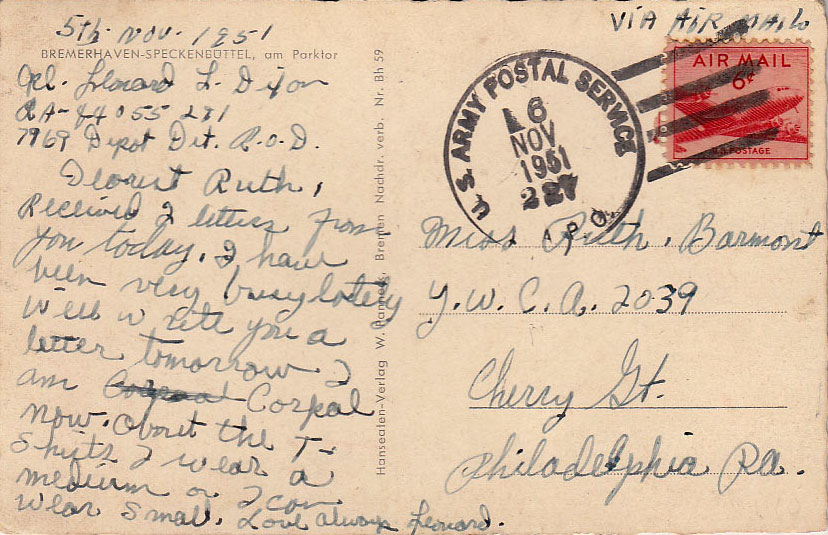 5th. Nov. 1951
BREMERHAVEN-SPECKENBÜTTEL, am Parktor
Cpl. Leonard L. Dixon
RA-44055281
7969 Depot Det. R.O.D.
Dearest Ruth,
Received 2 letters from
you today. I have
been very busy lately
Well write you a
letter tomorrow I
am Corpal
now. About the T-
Shirts I wear a
medium or I can
wear small. Love always Leonard.
Hanseaten-Verlag W. Bremen Nachdr. verb. Nr. Bh 59
VIA AIR MAIL
AIR MAIL
6¢
U.S. POSTAGE
U.S. ARMY POSTAL SERVICE
6
NOV
1951
227
A.P.O.
Miss Ruth. Barmont
Y.W.C.A. 2039
Cherry St.
Philadelphia Pa.